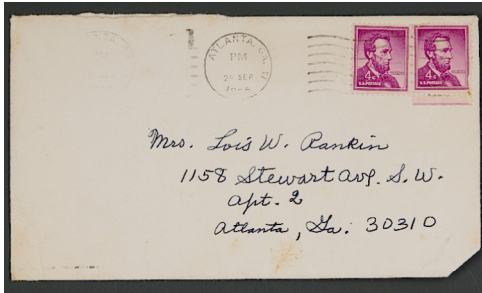 ATLANTA, GA.
PM
SEP
4¢ 4¢
U.S. POSTAGE U.S. POSTAGE
Mrs. Lois W. Rankin
1158 Stewart Ave. S. W.
Apt. 2
Atlanta, Ga. 30310